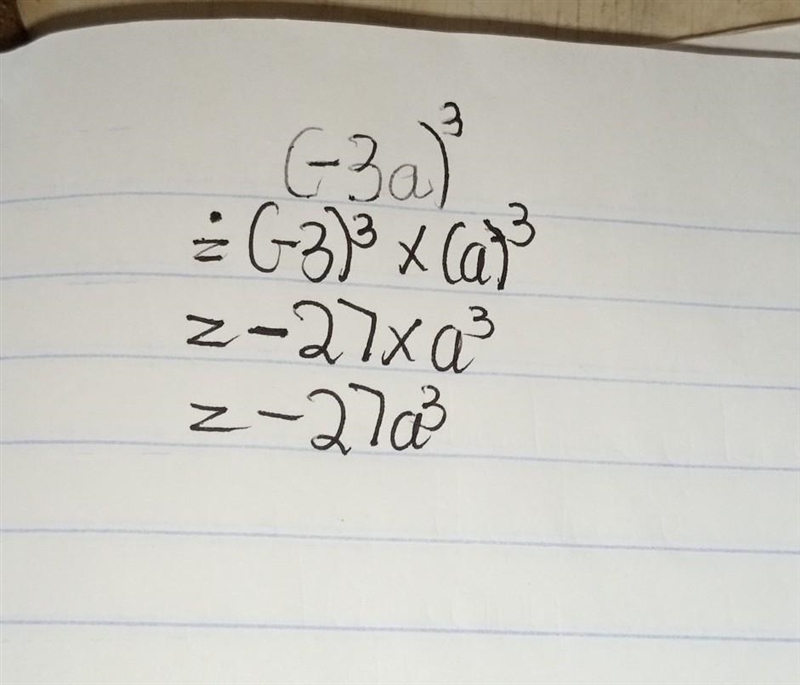 (-3a)³
= (-3)³ × (a)³
= -27 × a³
= -27a³